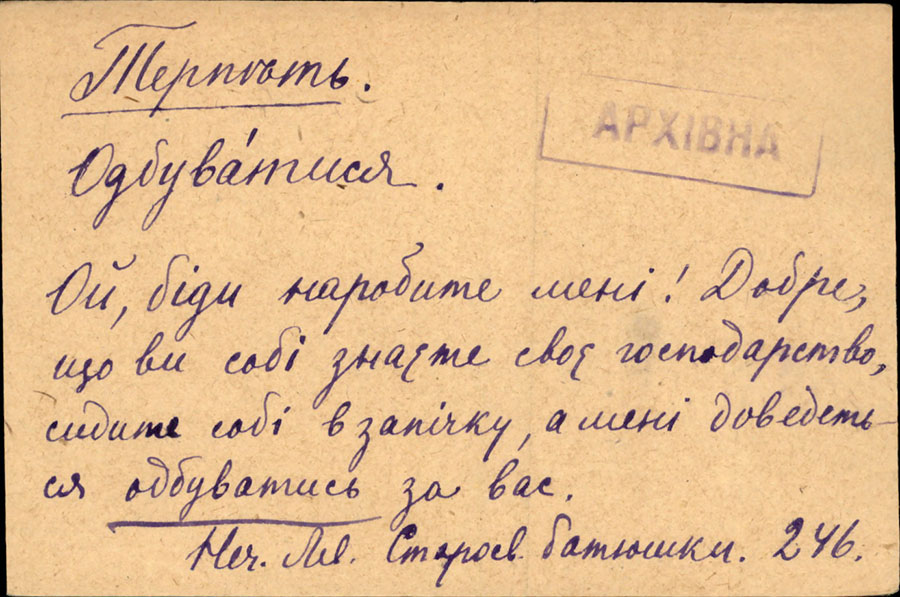 Терпѣть.
АРХІВНА
Одбува́тися.
Ой, біди наробите мені! Добре,
що ви собі знаєте своє господарство,
сидите собі в запічку, а мені доведеть-
ся одбуватись за вас.
Неч. Лев. Старосв. батюшки. 246.